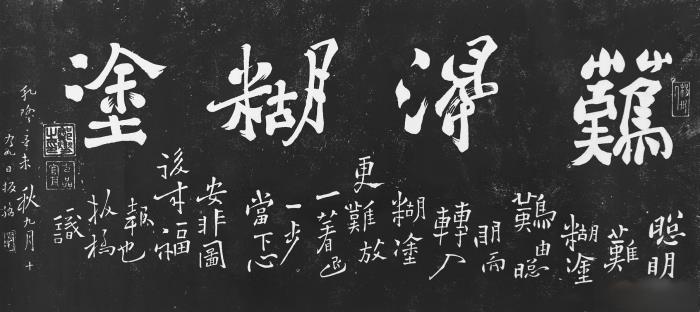 難得糊塗
聰明
難
糊塗
難由聰
明而
轉入
糊塗
更難放
一著退
一步
當下心
安非圖
後來福
報也
板橋
識
乾隆辛未秋九月十
九日板橋